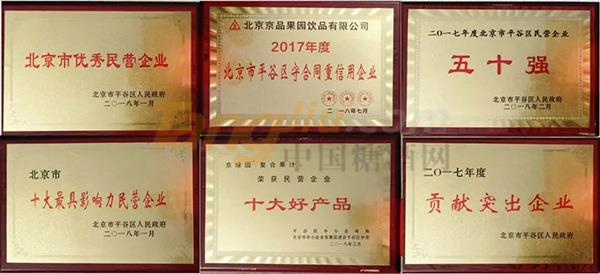 北京市优秀民营企业
北京市平谷区人民政府
二〇一八年一月
北京京品果园饮品有限公司
2017年度
北京市平谷区守合同重信用企业
二〇一八年七月
二〇一七年度北京市平谷区民营企业
五十强
北京市平谷区人民政府
二〇一八年二月
北京市
十大最具影响力民营企业
北京市平谷区人民政府
二〇一八年一月
京绿园 复合果汁:
荣获民营企业
十大好产品
二〇一八年三月
二〇一七年度
贡献突出企业
北京市平谷区人民政府
中国糖酒网